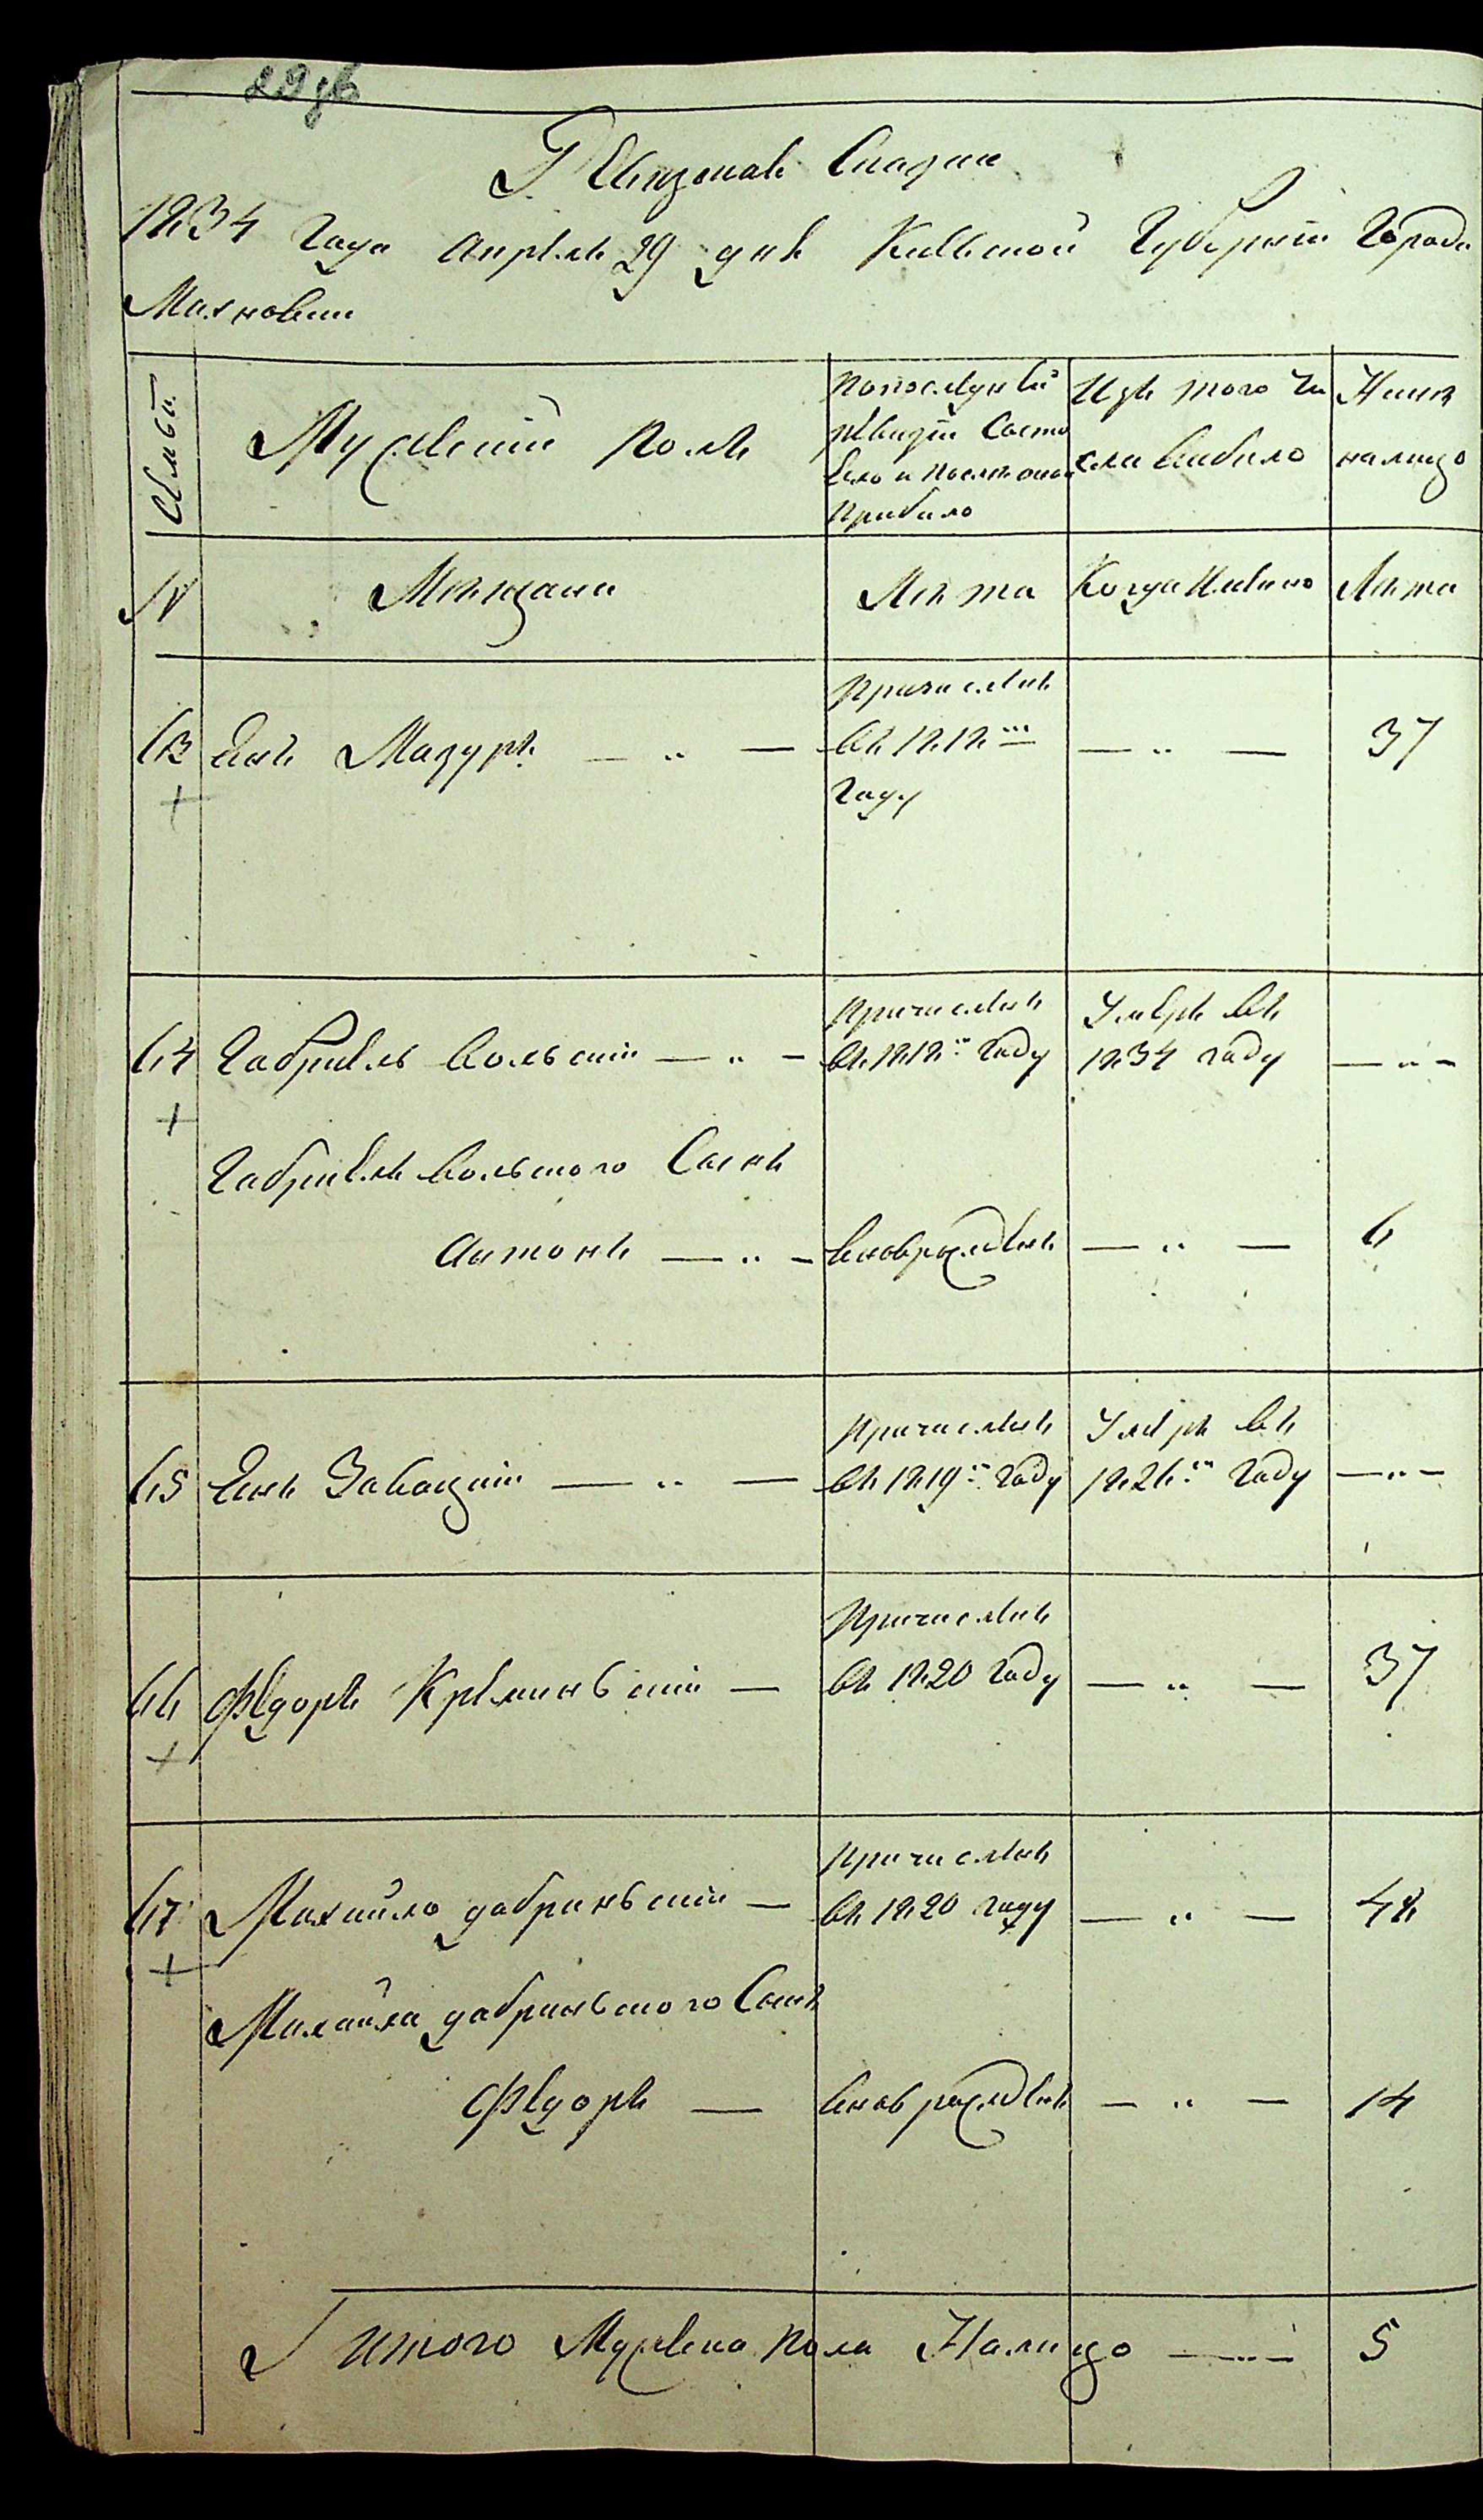 Ревизская Сказка
1834 Года Апреля 29 дня Киевской Губерніи Города
Махновки
Семьи
Мужескій Полъ
По последней ревизіи Состояло и после оной Прибыло
Изъ того Числа Выбыло
Ныне налицо
№
Мѣщане
Лѣта
Когда Именно
Лѣта
63 Янъ Мазуръ — " — Причисленъ въ 1818 Году — " — 37
64 Габріель Вольскій — " — Причисленъ въ 1818 Году Умеръ въ 1834 году — " —
Габріеля Вольского Сынъ
Антонъ — " — вновь рожденъ — " — 6
65 Янъ Завацкій — " — Причисленъ въ 1819 Году Умеръ въ 1826 Году — " —
66 Федоръ Креминьскій — Причисленъ въ 1820 Году — " — 37
67 Михайло Добриньскій — Причисленъ въ 1820 году — " — 48
Михайла Добриньского Сынъ
Федоръ — вновь рожденъ — " — 14
Итого Мужеска пола Налицо — " — 5